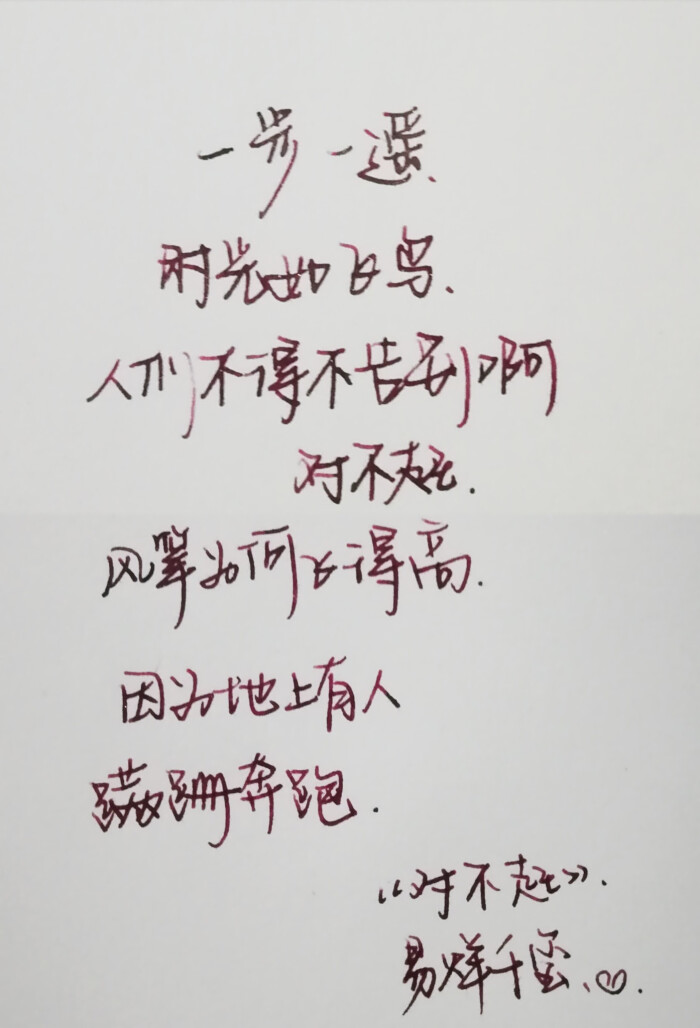 一步一遥、
时光如飞鸟、
人们不得不告别啊
对不起.
风筝为何飞得高.
因为地上有人
蹒跚奔跑.
《对不起》.
易烊千玺、♡.